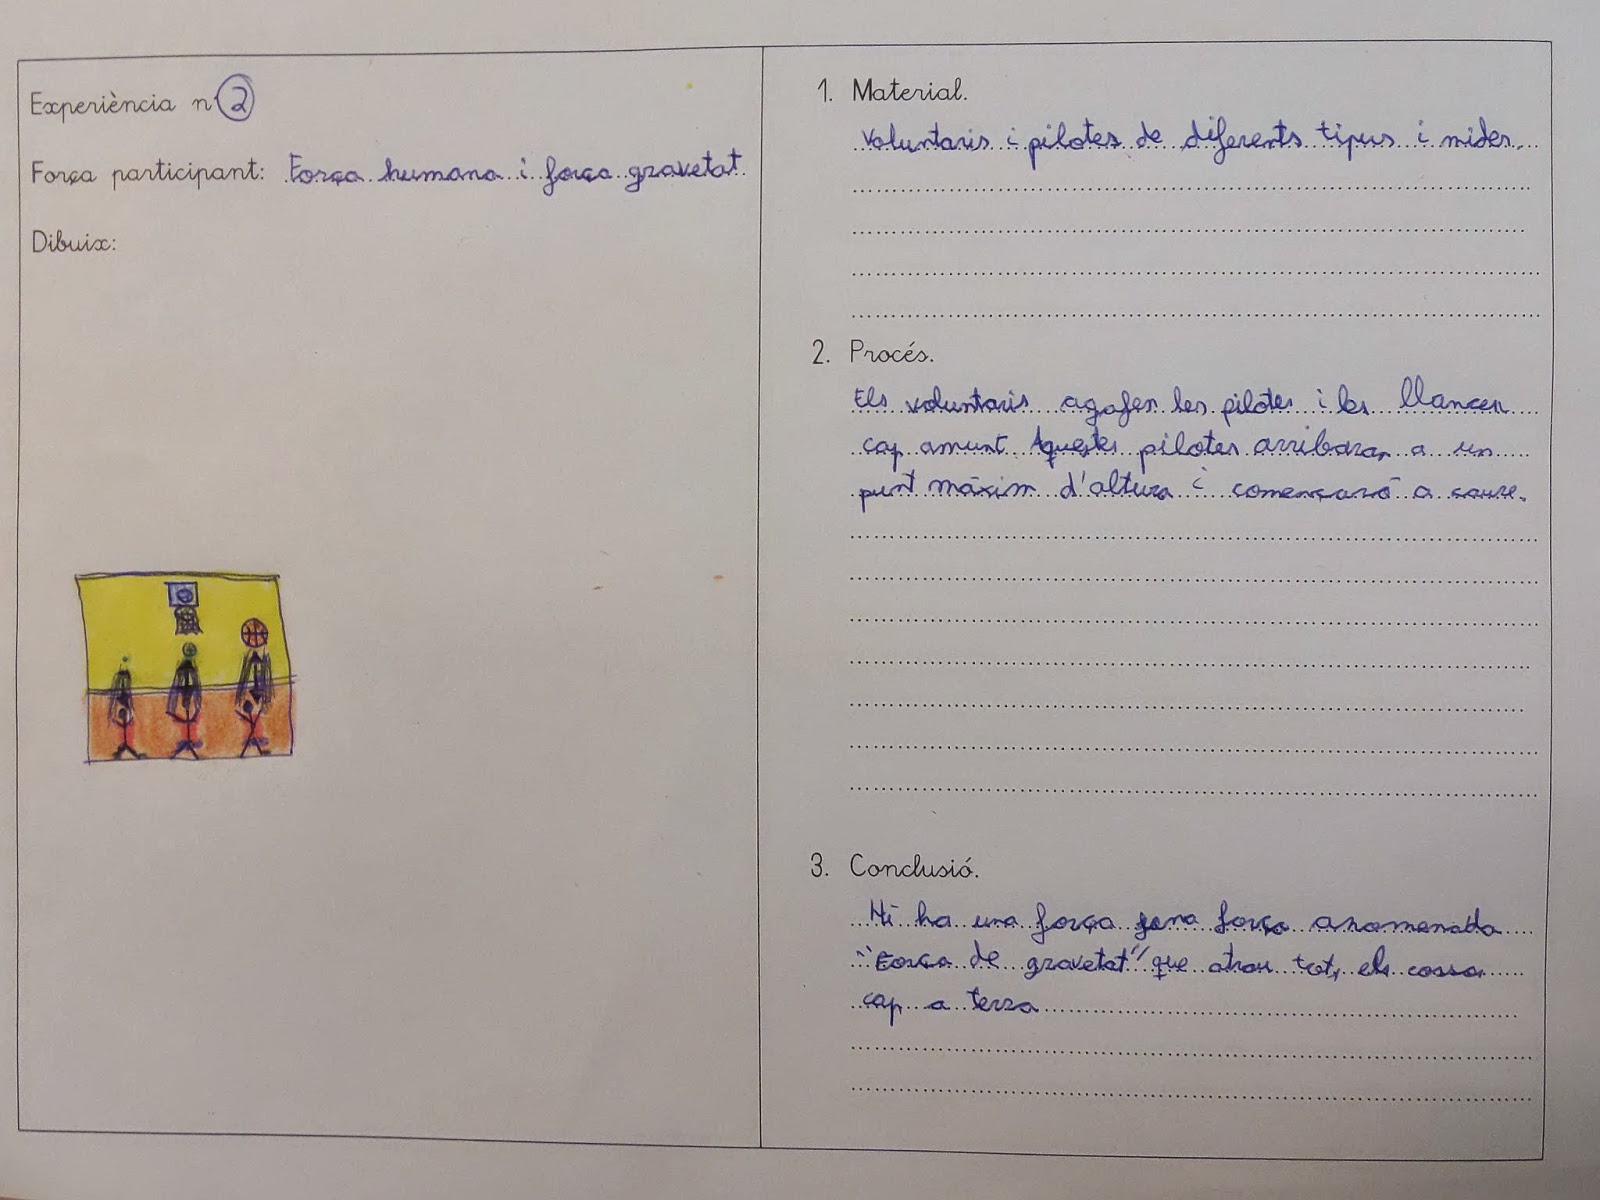 Experiència n 2
Força participant: Força humana i força gravetat
Dibuix:
1. Material.
Voluntaris i pilotes de diferents tipus i mides.
2. Procés.
Els voluntaris agafen les pilotes i les llancen
cap amunt. Aquestes pilotes arribaran a un
punt màxim d'altura i començará a caure.
3. Conclusió.
Hi ha una força força anomenada
"Força de gravetat" que atrau tot, els cossos
cap a terra